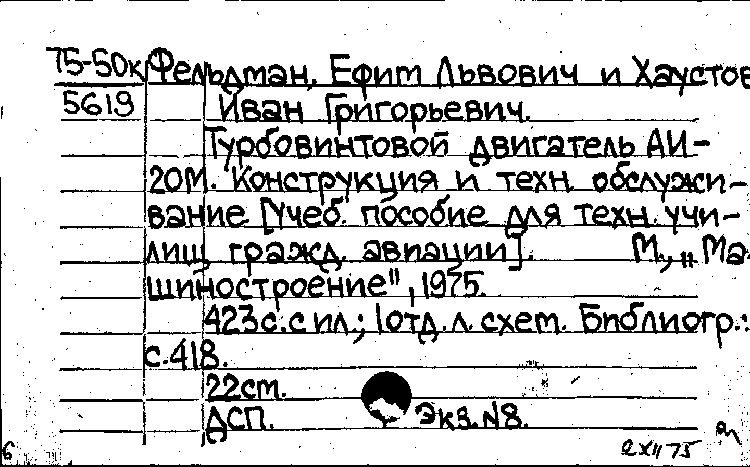 75-50к Фельдман, Ефим Львович и Хаустов
5619 Иван Григорьевич.
Турбовинтовой двигатель АИ-
20М. Конструкция и техн. обслужи-
вание [Учеб. пособие для техн. учи-
лищ гражд. авиации]. М., „Ма-
шиностроение", 1975.
423с. с ил.; 1отд. л. схем. Библиогр.:
с. 418.
22см.
ДСП. Экз. №8.
2 XII 75
6